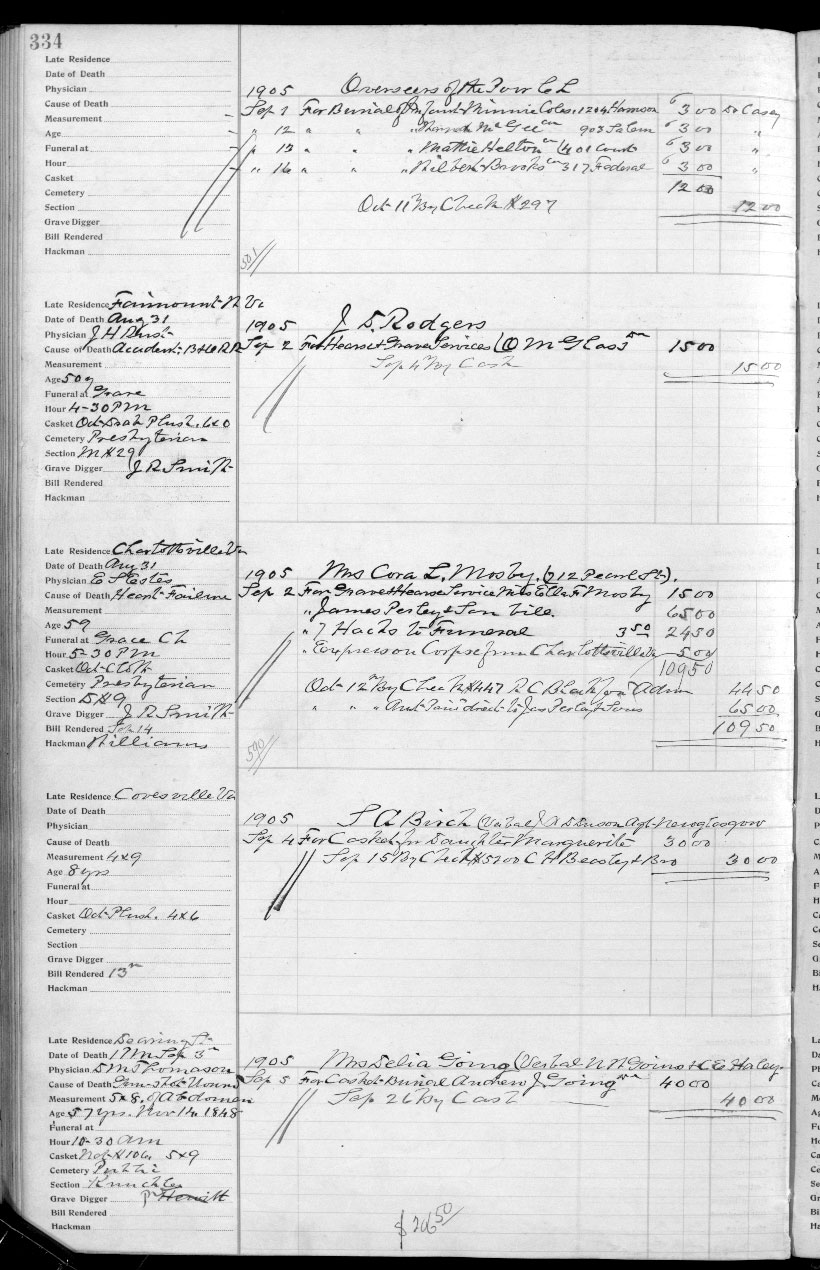 334
Late Residence
Date of Death
Physician
Cause of Death
Measurement
Age
Funeral at
Hour
Casket
Cemetery
Section
Grave Digger
Bill Rendered
Hackman
1905 Overseers of the Poor
Sep 1 For Burial of Infant Minnie Coles 1204 Harrison 3 00 Do Casey
" 12 " " " Mc Gee 903 Salem 3 00 "
" 13 " " " Mattie Helton 401 Court 3 00 "
" 14 " " " Brooks 317 Federal 3 00 "
12 00
Oct 11 By Check # 297 12 00
501
Late Residence Fairmount W Va
Date of Death Aug 31
Physician J H
Cause of Death Accident B & O RR
Measurement
Age 50 y
Funeral at Grave
Hour 4-30 PM
Casket Oct Plush 6x0
Cemetery Presbyterian
Section
Grave Digger J R Smith
Bill Rendered
Hackman
1905 J. S. Rodgers
Sep 2 For Hearse & Grave Services 15 00
Sep 4 By Cash 15 00
Late Residence Charlottesville Va
Date of Death Aug 31
Physician E S Estes
Cause of Death Heart Failure
Measurement
Age 59
Funeral at Grace Ch
Hour 5-30 PM
Casket Oct Cloth
Cemetery Presbyterian
Section
Grave Digger J R Smith
Bill Rendered Sep 14
Hackman Williams
1905 Mrs Cora L. Mosby. (712 Pearl St).
Sep 2 For Grave & Hearse Service Miss Ella F Mosby 15 00
" James Perley & Son bill. 65 00
" 7 Hacks to Funeral 3 50 24 50
" Express on Corpse from Charlottesville Va 5 00
109 50
Oct 12 By Check # 447 R C Blackford Admr 44 50
" " " Amt Paid direct to Jas Perley & Sons 65 00
109 50
590
Late Residence Covesville Va
Date of Death
Physician
Cause of Death
Measurement 4x9
Age 8 yrs
Funeral at
Hour
Casket Oct Plush. 4x6
Cemetery
Section
Grave Digger
Bill Rendered 13
Hackman
1905 S A Birch (Verbal Agt
Sep 4 For Casket for Daughter Marguerite 30 00
Sep 15 By Check # 5200 C H Beasley & Bro 30 00
Late Residence Dearing St
Date of Death 1 PM Sep 3
Physician D M Thomason
Cause of Death Gun Shot Wound
Measurement 5x8. of Abdomen
Age 57 yrs. Nov 14 1848
Funeral at
Hour 10-30 AM
Casket No # 106 5x9
Cemetery Public
Section
Grave Digger Hewitt
Bill Rendered
Hackman
1905 Mrs Delia Going (Verbal & C E Haley
Sep 5 For Casket Burial Andrew J. Going 40 00
Sep 26 By Cash 40 00